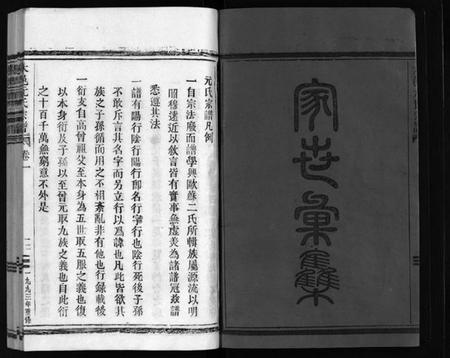 家世彙集
元氏宗譜凡例
一自宗法廢而譜學興歐蘇二氏所輯族屬源流以明
昭穆遠近以敘言皆有實事無虛美為諸譜冠茲譜
悉遵其法
一譜有陽行陰行陽行即名行字行也陰行死後子孫
不敢斥言其名字而另立行以為諱也凡此皆欲其
族之子孫循而用之不相紊亂非有他也行錄載後
一衍支自高曾祖父至本身為五世取五服之義也復
以本身衍及子孫以至曾元取九族之義也自此衍
之十百千萬無窮意不外是
元氏宗譜
卷一
一
一九九三年重修